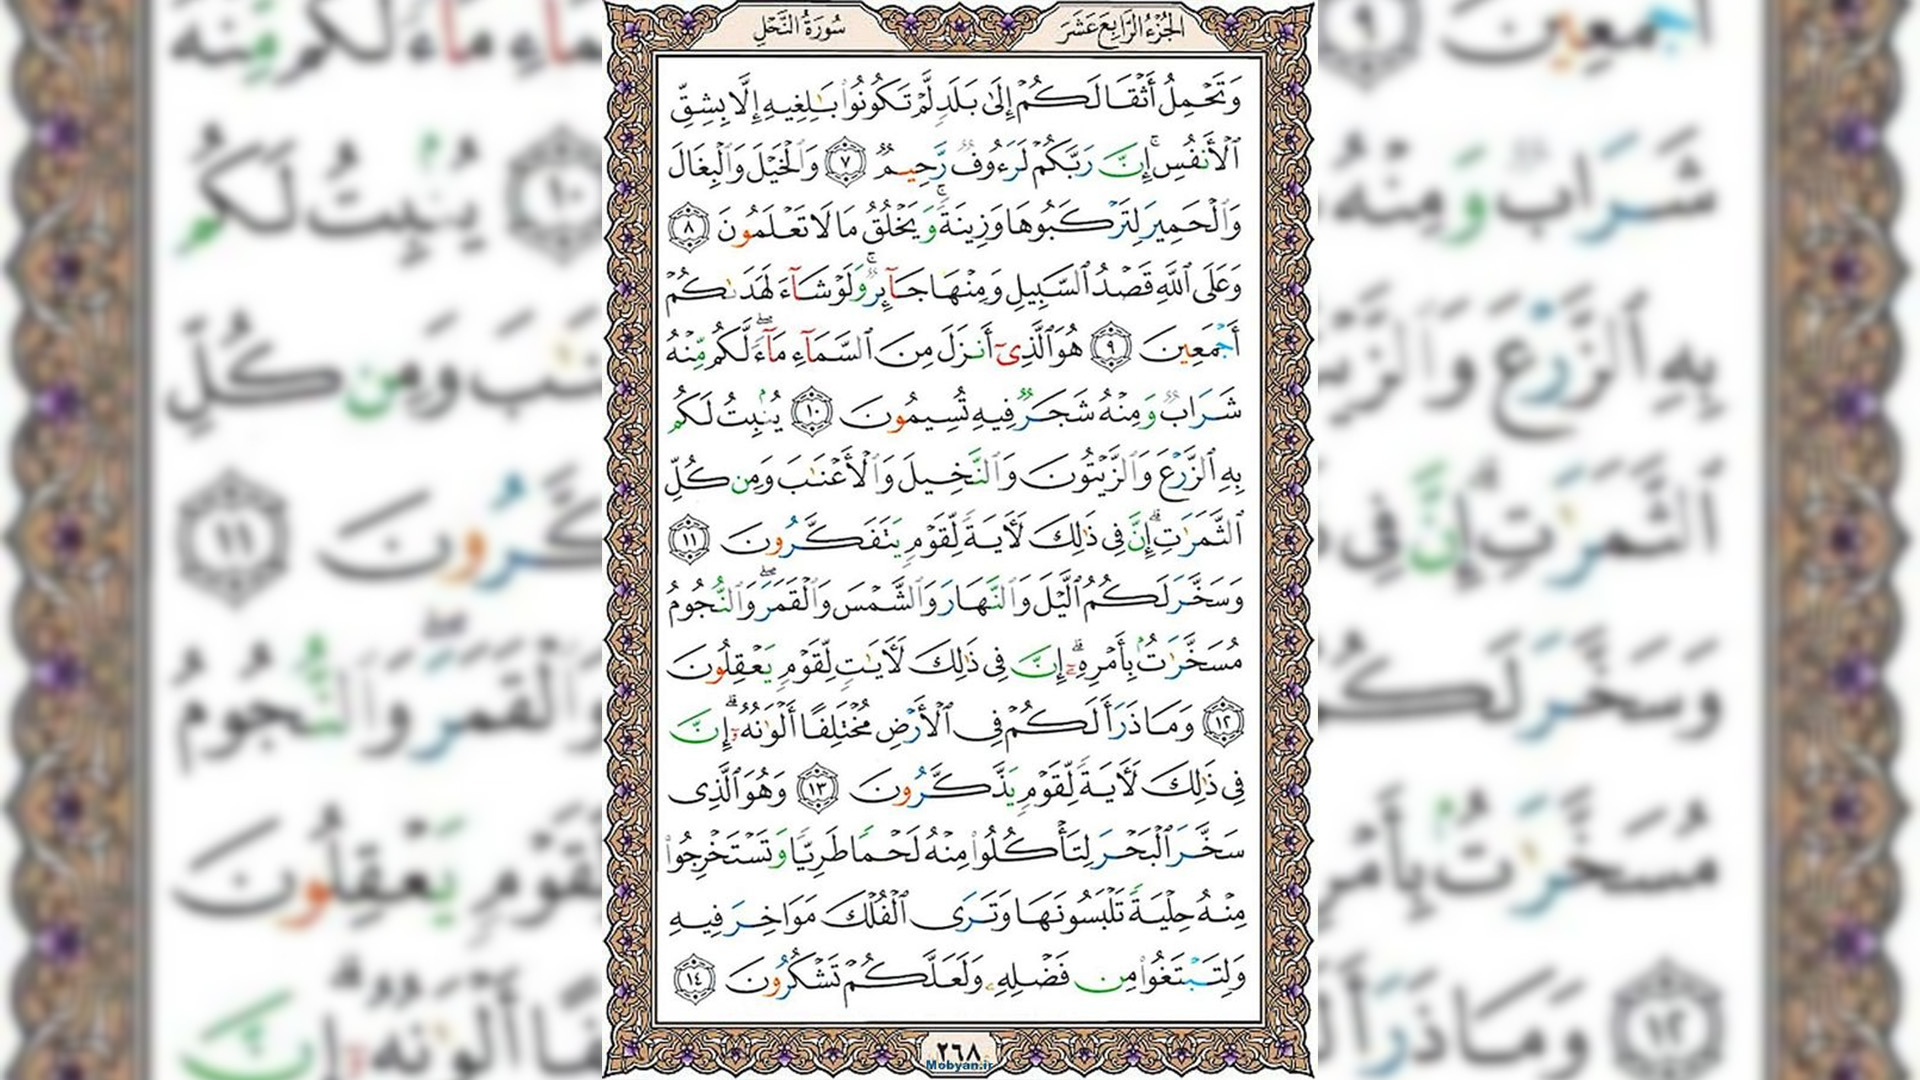 الجزء الرابع عشر
سورة النحل
وَتَحْمِلُ أَثْقَالَكُمْ إِلَىٰ بَلَدٍ لَّمْ تَكُونُوا۟ بَـٰلِغِيهِ إِلَّا بِشِقِّ
ٱلْأَنفُسِ ۚ إِنَّ رَبَّكُمْ لَرَءُوفٌ رَّحِيمٌ ٧ وَٱلْخَيْلَ وَٱلْبِغَالَ
وَٱلْحَمِيرَ لِتَرْكَبُوهَا وَزِينَةً ۚ وَيَخْلُقُ مَا لَا تَعْلَمُونَ ٨
وَعَلَى ٱللَّهِ قَصْدُ ٱلسَّبِيلِ وَمِنْهَا جَآئِرٌ ۚ وَلَوْ شَآءَ لَهَدَىٰكُمْ
أَجْمَعِينَ ٩ هُوَ ٱلَّذِىٓ أَنزَلَ مِنَ ٱلسَّمَآءِ مَآءً ۖ لَّكُم مِّنْهُ
شَرَابٌ وَمِنْهُ شَجَرٌ فِيهِ تُسِيمُونَ ١٠ يُنۢبِتُ لَكُم
بِهِ ٱلزَّرْعَ وَٱلزَّيْتُونَ وَٱلنَّخِيلَ وَٱلْأَعْنَـٰبَ وَمِن كُلِّ
ٱلثَّمَرَٰتِ ۗ إِنَّ فِى ذَٰلِكَ لَـَٔايَةً لِّقَوْمٍ يَتَفَكَّرُونَ ١١
وَسَخَّرَ لَكُمُ ٱلَّيْلَ وَٱلنَّهَارَ وَٱلشَّمْسَ وَٱلْقَمَرَ ۖ وَٱلنُّجُومُ
مُسَخَّرَٰتٌۢ بِأَمْرِهِۦٓ ۗ إِنَّ فِى ذَٰلِكَ لَـَٔايَـٰتٍ لِّقَوْمٍ يَعْقِلُونَ
١٢ وَمَا ذَرَأَ لَكُمْ فِى ٱلْأَرْضِ مُخْتَلِفًا أَلْوَٰنُهُۥٓ ۗ إِنَّ
فِى ذَٰلِكَ لَـَٔايَةً لِّقَوْمٍ يَذَّكَّرُونَ ١٣ وَهُوَ ٱلَّذِى
سَخَّرَ ٱلْبَحْرَ لِتَأْكُلُوا۟ مِنْهُ لَحْمًا طَرِيًّا وَتَسْتَخْرِجُوا۟
مِنْهُ حِلْيَةً تَلْبَسُونَهَا وَتَرَى ٱلْفُلْكَ مَوَاخِرَ فِيهِ
وَلِتَبْتَغُوا۟ مِن فَضْلِهِۦ وَلَعَلَّكُمْ تَشْكُرُونَ ١٤
٢٦٨
Mobyan.ir